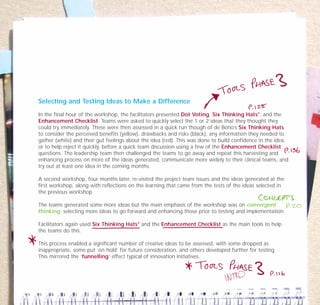 TOOLS PHASE 3
Selecting and Testing Ideas to Make a Difference
p.128
In the final hour of the workshop, the facilitators presented Dot Voting, Six Thinking Hats*, and the
Enhancement Checklist. Teams were asked to quickly select the 1 or 2 ideas that they thought they
could try immediately. These were then assessed in a quick run though of de Bono's Six Thinking Hats
to consider the perceived benefits (yellow), drawbacks and risks (black), any information they needed to
gather (white) and their gut feelings about the idea (red). This was done to build confidence in the idea,
or to help reject it quickly, before a quick team discussion using a few of the Enhancement Checklist
questions. The leadership team then challenged the teams to go away and repeat this harvesting and
p.136
enhancing process on more of the ideas generated, communicate more widely to their clinical teams, and
try out at least one idea in the coming months.
A second workshop, four months later, re-visited the project team issues and the ideas generated at the
first workshop, along with reflections on the learning that came from the tests of the ideas selected in
the previous workshop.
CONCEPTS
The teams generated some more ideas but the main emphasis of the workshop was on convergent
thinking: selecting more ideas to go forward and enhancing those prior to testing and implementation.
Facilitators again used Six Thinking Hats* and the Enhancement Checklist as the main tools to help
the teams do this.
* This process enabled a significant number of creative ideas to be assessed, with some dropped as
inappropriate, some put 'on hold' for future consideration, and others developed further for testing.
This mirrored the 'funnelling' effect typical of innovation initiatives.
* TOOLS PHASE 3 p.116
INTRO